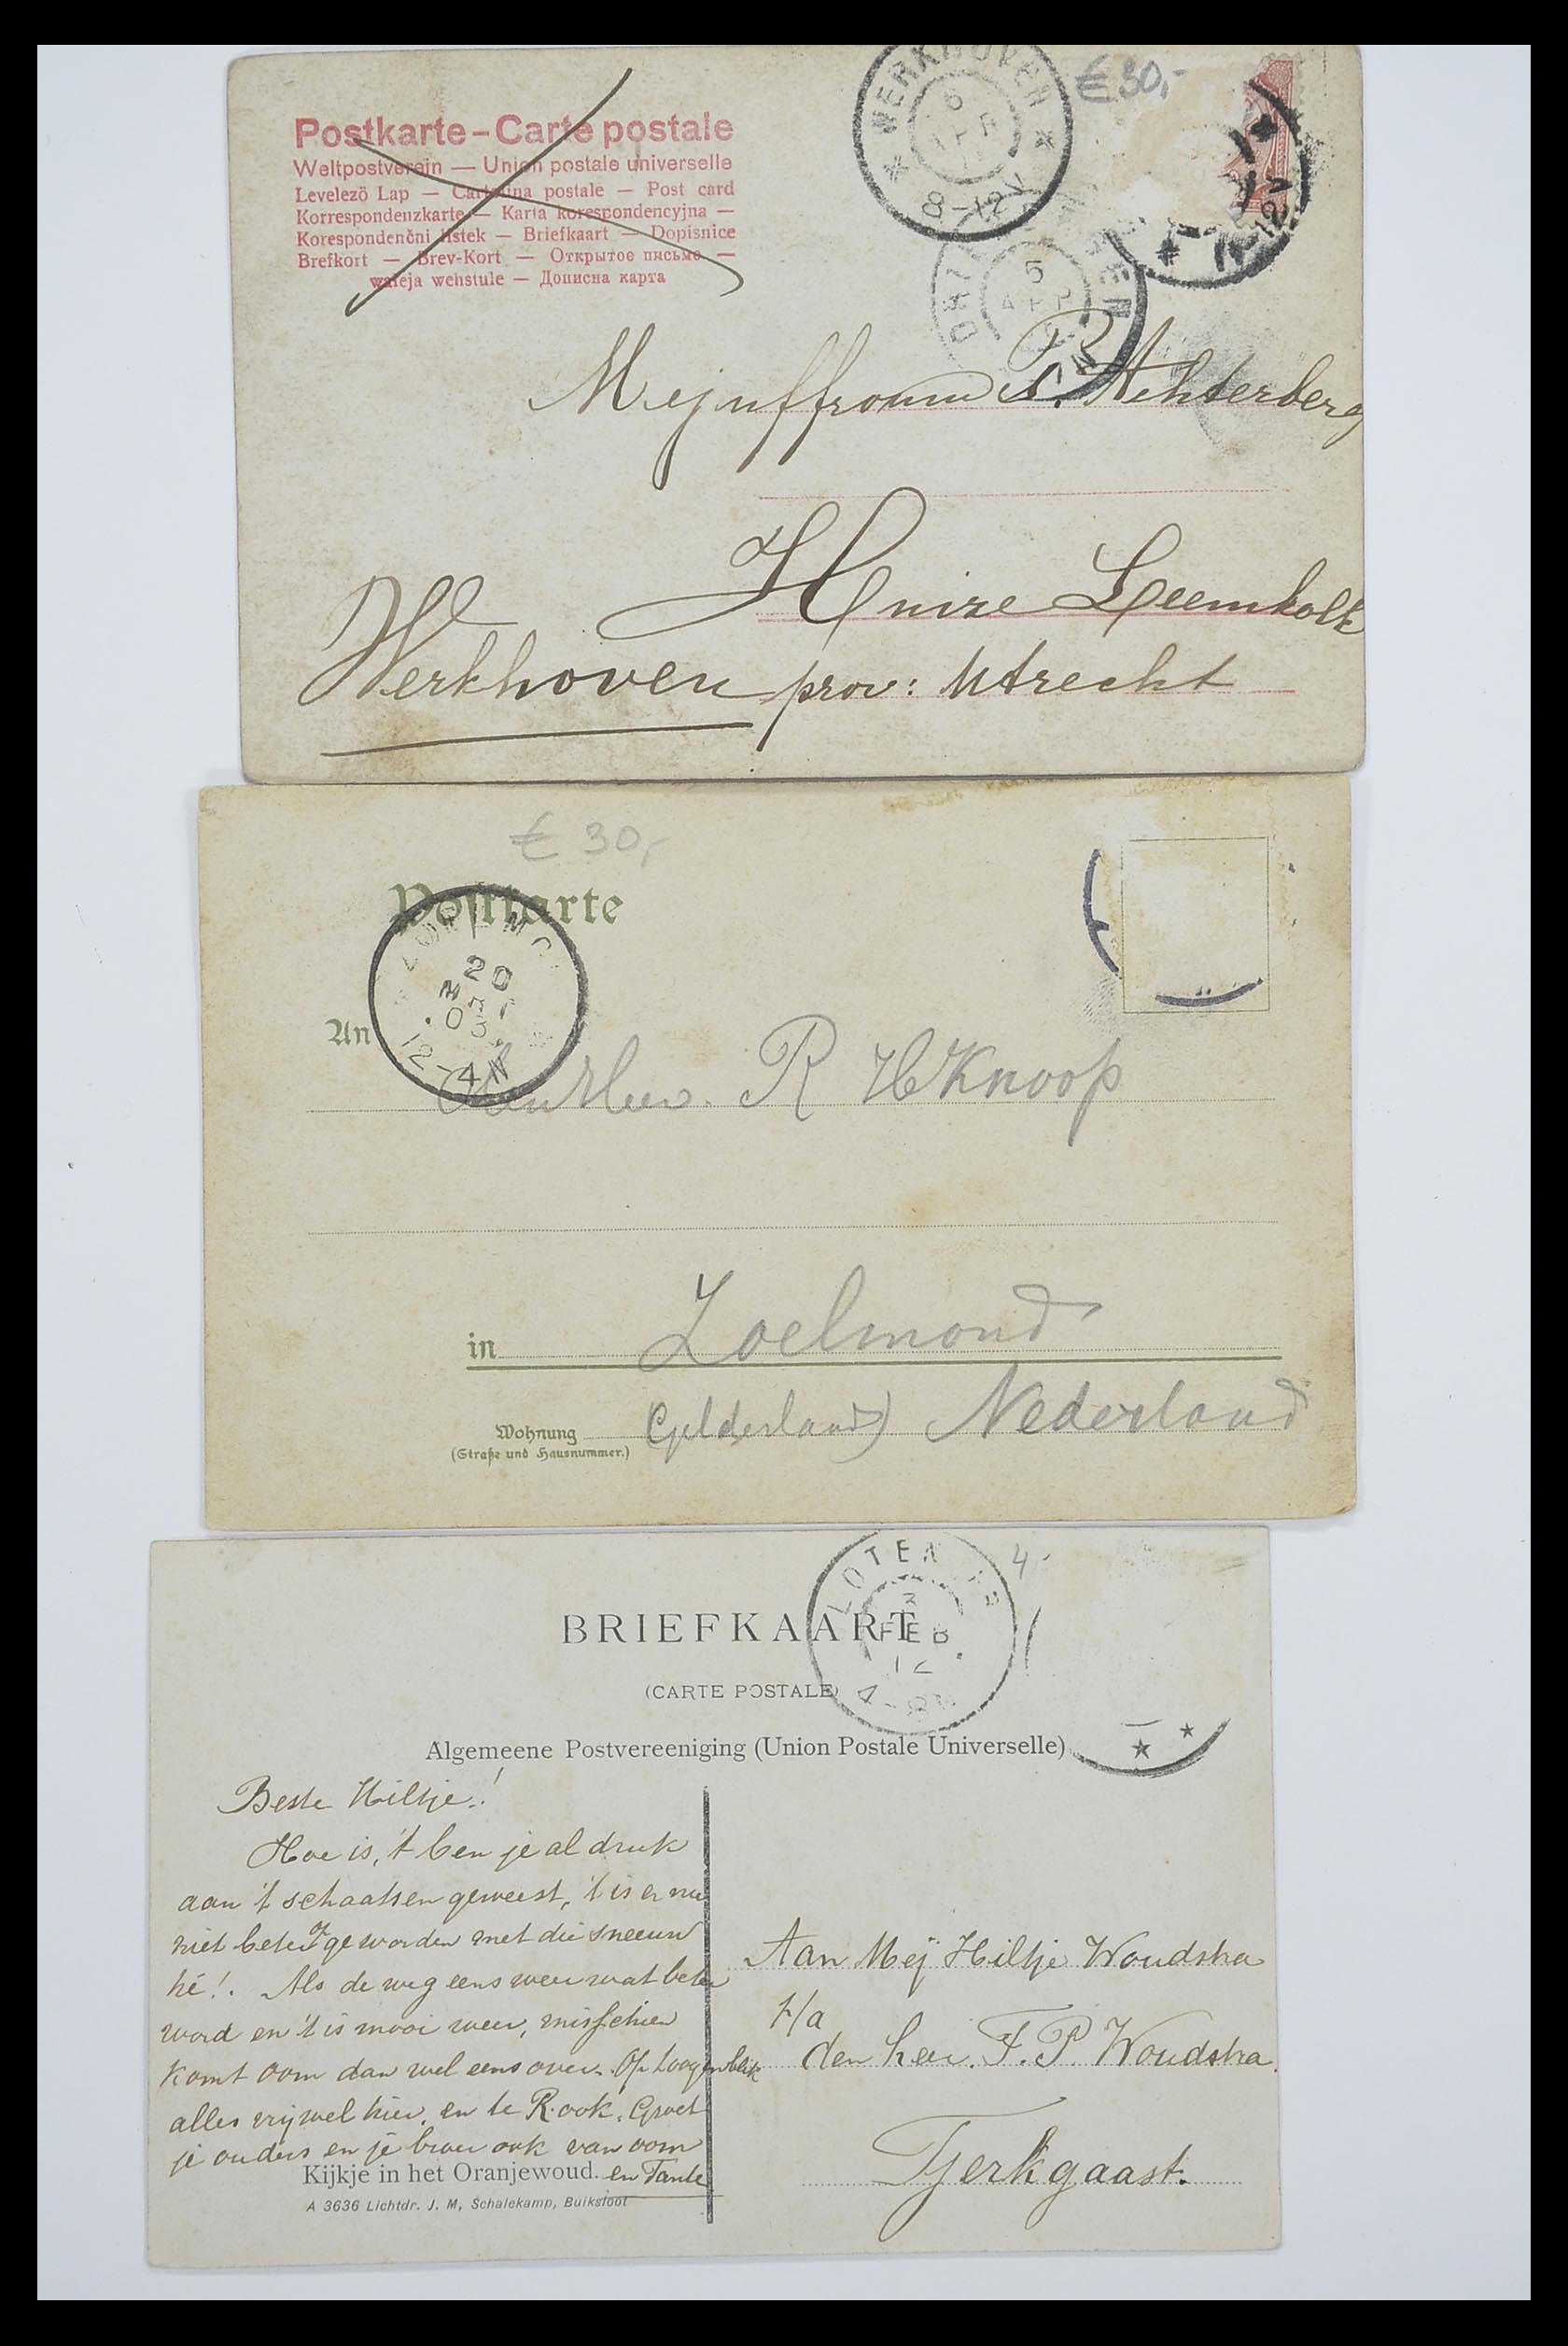 WERKHOVEN
5
APR
8-12V
€ 30,-
Postkarte - Carte postale
Weltpostverein — Union postale universelle
Levelező Lap — Cartolina postale — Post card
Korrespondenzkarte — Karta korespondencyjna —
Korespondenční lístek — Briefkaart — Dopisnice
Brefkort — Brev-Kort — Открытое письмо —
weleja wehstule — Дописна карта
5
APR
Mejuffrouw P. Achterberg
Huize Leemkolk
Werkhoven prov: Utrecht
€ 30,-
Postkarte
20
03
12-4N
An
Den Heer. R H Knoop
in Zoelmond
Wohnung (Gelderland) Nederland
(Straße und Hausnummer.)
SLOTEN
FEB
12
4-8N
4,-
BRIEFKAART
(CARTE POSTALE)
Algemeene Postvereeniging (Union Postale Universelle)
Beste Hiltje!
Hoe is, 't ben je al druk
aan 't schaatsen geweest, 't is er nu
niet beter op geworden met die sneeuw
hé!. Als de weg eens weer wat beter
word en 't is mooi weer, misschien
komt oom dan wel eens over. Op 't oogenblik
alles vrij wel hier, en te R. ook. Groet
je ouders en je broer ook van oom
en Tante
Aan Mej Hiltje Woudstra
p/a
den heer. F. P. Woudstra.
Tjerkgaast.
Kijkje in het Oranjewoud.
A 3636 Lichtdr. J. M, Schalekamp, Buiksloot